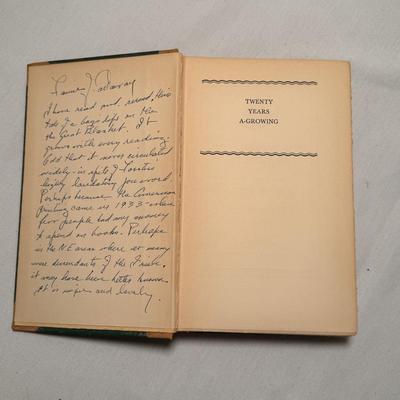 I have read and reread, this
tale of a boy's life on
the Great Blasket. It
grows with every reading.
Odd that it never circulated
widely - in spite of
highly laudatory foreword.
Perhaps because the American
printing came in 1933 - when
few people had any money
to spend on books. Perhaps
in the N.E. areas where so many
were descendants of the Irish,
it may have been better known.
It is and lovely.
TWENTY
YEARS
A-GROWING